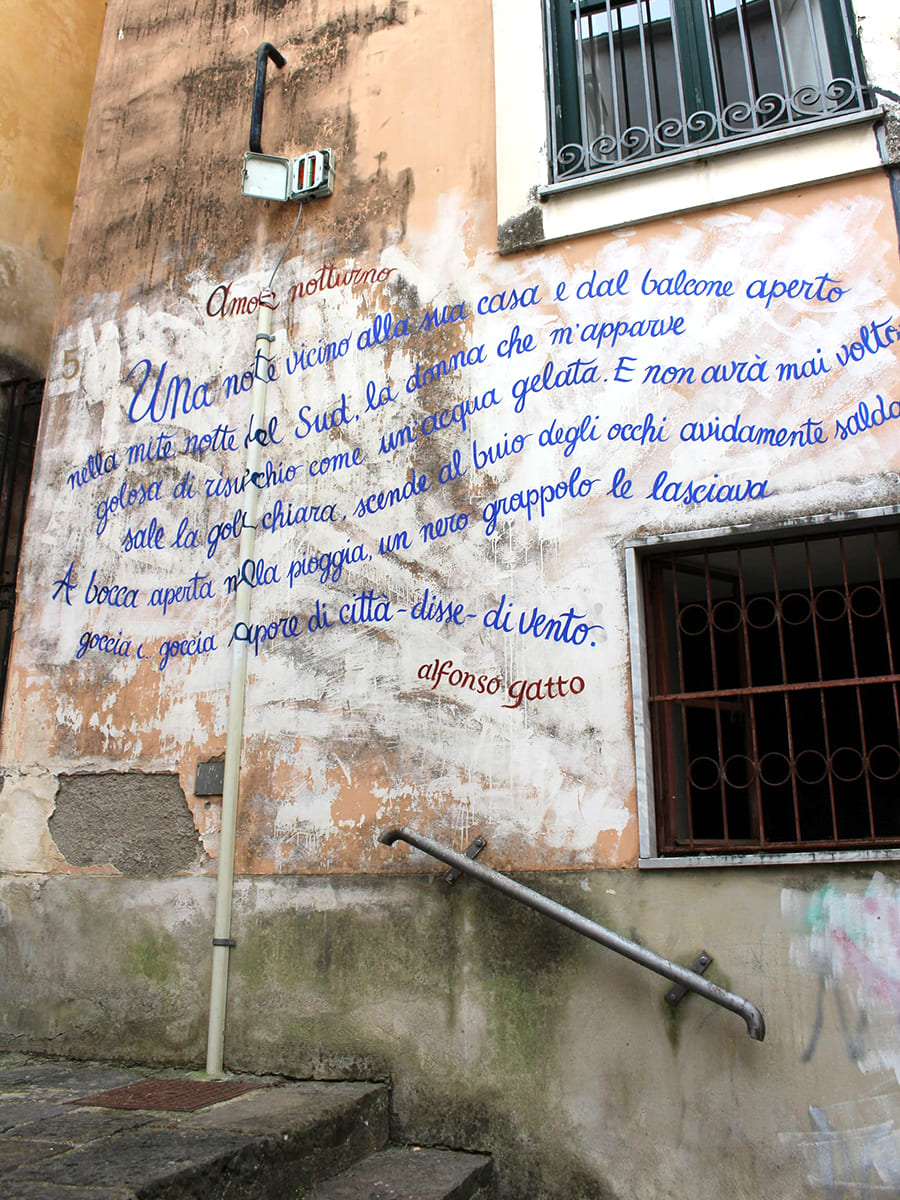 Amor notturno
5
Una notte vicino alla sua casa e dal balcone aperto
nella mite notte del Sud, la donna che m'apparve
golosa di risucchio come un'acqua gelata. E non avrà mai volto
sale la gola chiara, scende al buio degli occhi avidamente salda
A bocca aperta nella pioggia, un nero grappolo le lasciava
goccia a goccia sapore di città-disse-di vento.
alfonso gatto